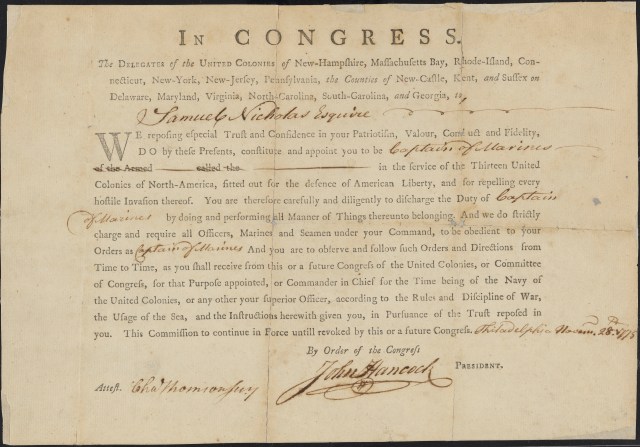 IN CONGRESS.
The DELEGATES of the UNITED COLONIES of NEW-HAMPSHIRE, MASSACHUSETTS BAY, RHODE-ISLAND, CON-
NECTICUT, NEW-YORK, NEW-JERSEY, PENNSYLVANIA, the COUNTIES of NEW-CASTLE, KENT, and SUSSEX on
DELAWARE, MARYLAND, VIRGINIA, NORTH-CAROLINA, SOUTH-CAROLINA, and GEORGIA, to
Samuel Nicholas Esquire
WE reposing especial Trust and Confidence in your Patriotism, Valour, Conduct and Fidelity,
DO by these Presents, constitute and appoint you to be Captain of Marines
of the Armed called the in the service of the Thirteen United
Colonies of North-America, fitted out for the defence of American Liberty, and for repelling every
hostile Invasion thereof. You are therefore carefully and diligently to discharge the Duty of Captain
of Marines by doing and performing all Manner of Things thereunto belonging. And we do strictly
charge and require all Officers, Marines and Seamen under your Command, to be obedient to your
Orders as Captain of Marines And you are to observe and follow such Orders and Directions from
Time to Time, as you shall receive from this or a future Congress of the United Colonies, or Committee
of Congress, for that Purpose appointed, or Commander in Chief for the Time being of the Navy of
the United Colonies, or any other your superior Officer, according to the Rules and Discipline of War,
the Usage of the Sea, and the Instructions herewith given you, in Pursuance of the Trust reposed in
you. This Commission to continue in Force untill revoked by this or a future Congress. Philadelphia Novem. 28th 1775
By Order of the Congress
John Hancock PRESIDENT.
Attest. Cha Thomson secy